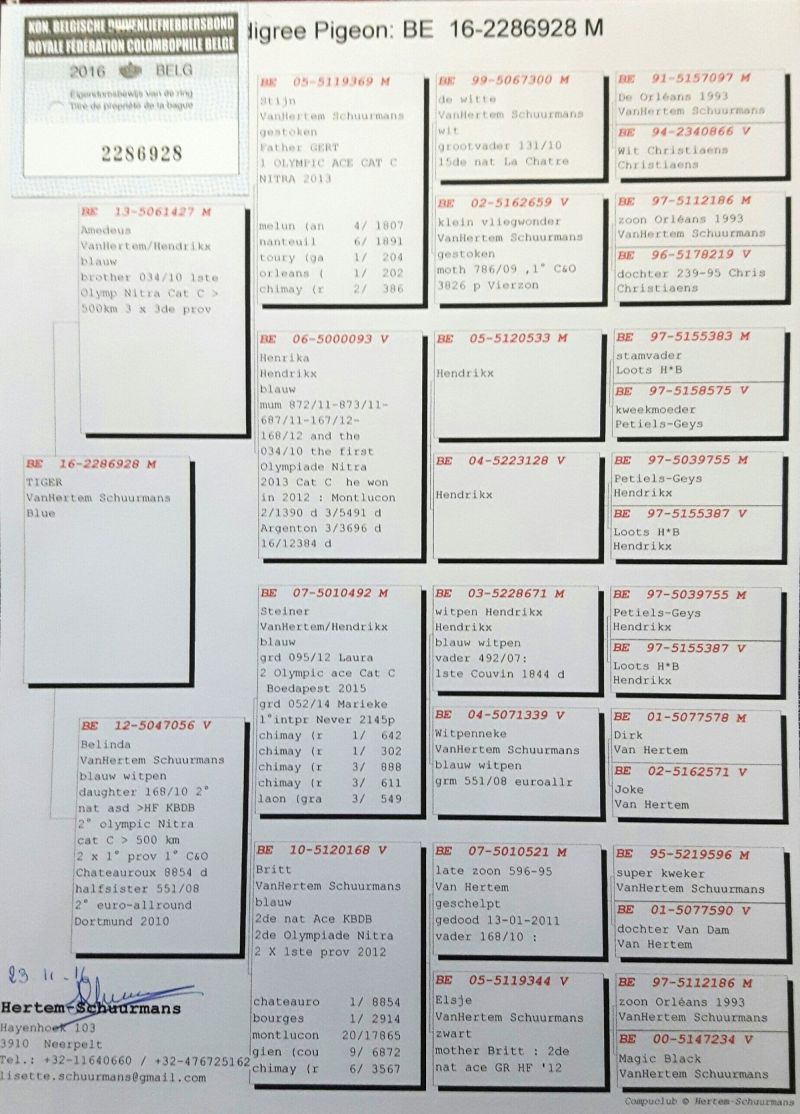 KON. BELGISCHE DUIVENLIEFHEBBERSBOND
ROYALE FÉDÉRATION COLOMBOPHILE BELGE
2016 BELG
Eigendomsbewijs van de ring
Titre de propriété de la bague
2286928
digree Pigeon: BE 16-2286928 M
BE 16-2286928 M
TIGER
VanHertem Schuurmans
Blue
BE 13-5061427 M
Amedeus
VanHertem/Hendrikx
blauw
brother 034/10 1ste
Olymp Nitra Cat C >
500km 3 x 3de prov
BE 12-5047056 V
Belinda
VanHertem Schuurmans
blauw witpen
daughter 168/10 2°
nat asd >HF KBDB
2° olympic Nitra
cat C > 500 km
2 x 1° prov 1° C&O
Chateauroux 8854 d
halfsister 551/08
2° euro-allround
Dortmund 2010
BE 05-5119369 M
Stijn
VanHertem Schuurmans
gestoken
Father GERT
1 OLYMPIC ACE CAT C
NITRA 2013
melun (an 4/ 1807
nanteuil 6/ 1891
toury (ga 1/ 204
orleans ( 1/ 202
chimay (r 2/ 386
BE 06-5000093 V
Henrika
Hendrikx
blauw
mum 872/11-873/11-
687/11-167/12-
168/12 and the
034/10 the first
Olympiade Nitra
2013 Cat C he won
in 2012 : Montlucon
2/1390 d 3/5491 d
Argenton 3/3696 d
16/12384 d
BE 07-5010492 M
Steiner
VanHertem/Hendrikx
blauw
grd 095/12 Laura
2 Olympic ace Cat C
Boedapest 2015
grd 052/14 Marieke
1°intpr Never 2145p
chimay (r 1/ 642
chimay (r 1/ 302
chimay (r 3/ 888
chimay (r 3/ 611
laon (gra 3/ 549
BE 10-5120168 V
Britt
VanHertem Schuurmans
blauw
2de nat Ace KBDB
2de Olympiade Nitra
2 X 1ste prov 2012
chateauro 1/ 8854
bourges 1/ 2914
montlucon 20/17865
gien (cou 9/ 6872
chimay (r 6/ 3567
BE 99-5067300 M
de witte
VanHertem Schuurmans
wit
grootvader 131/10
15de nat La Chatre
BE 02-5162659 V
klein vliegwonder
VanHertem Schuurmans
gestoken
moth 786/09 ,1° C&O
3826 p Vierzon
BE 05-5120533 M
Hendrikx
BE 04-5223128 V
Hendrikx
BE 03-5228671 M
witpen Hendrikx
Hendrikx
blauw witpen
vader 492/07:
1ste Couvin 1844 d
BE 04-5071339 V
Witpenneke
VanHertem Schuurmans
blauw witpen
grm 551/08 euroallr
BE 07-5010521 M
late zoon 596-95
Van Hertem
geschelpt
gedood 13-01-2011
vader 168/10 :
BE 05-5119344 V
Elsje
VanHertem Schuurmans
zwart
mother Britt : 2de
nat ace GR HF '12
BE 91-5157097 M
De Orléans 1993
VanHertem Schuurmans
BE 94-2340866 V
Wit Christiaens
Christiaens
BE 97-5112186 M
zoon Orléans 1993
VanHertem Schuurmans
BE 96-5178219 V
dochter 239-95 Chris
Christiaens
BE 97-5155383 M
stamvader
Loots H*B
BE 97-5158575 V
kweekmoeder
Petiels-Geys
BE 97-5039755 M
Petiels-Geys
Hendrikx
BE 97-5155387 V
Loots H*B
Hendrikx
BE 97-5039755 M
Petiels-Geys
Hendrikx
BE 97-5155387 V
Loots H*B
Hendrikx
BE 01-5077578 M
Dirk
Van Hertem
BE 02-5162571 V
Joke
Van Hertem
BE 95-5219596 M
super kweker
VanHertem Schuurmans
BE 01-5077590 V
dochter Van Dam
Van Hertem
BE 97-5112186 M
zoon Orléans 1993
VanHertem Schuurmans
BE 00-5147234 V
Magic Black
VanHertem Schuurmans
23 11 - 16
Hertem-Schuurmans
Hayenhoek 103
3910 Neerpelt
Tel.: +32-11640660 / +32-476725162
lisette.schuurmans@gmail.com
Compuclub © Hertem-Schuurmans